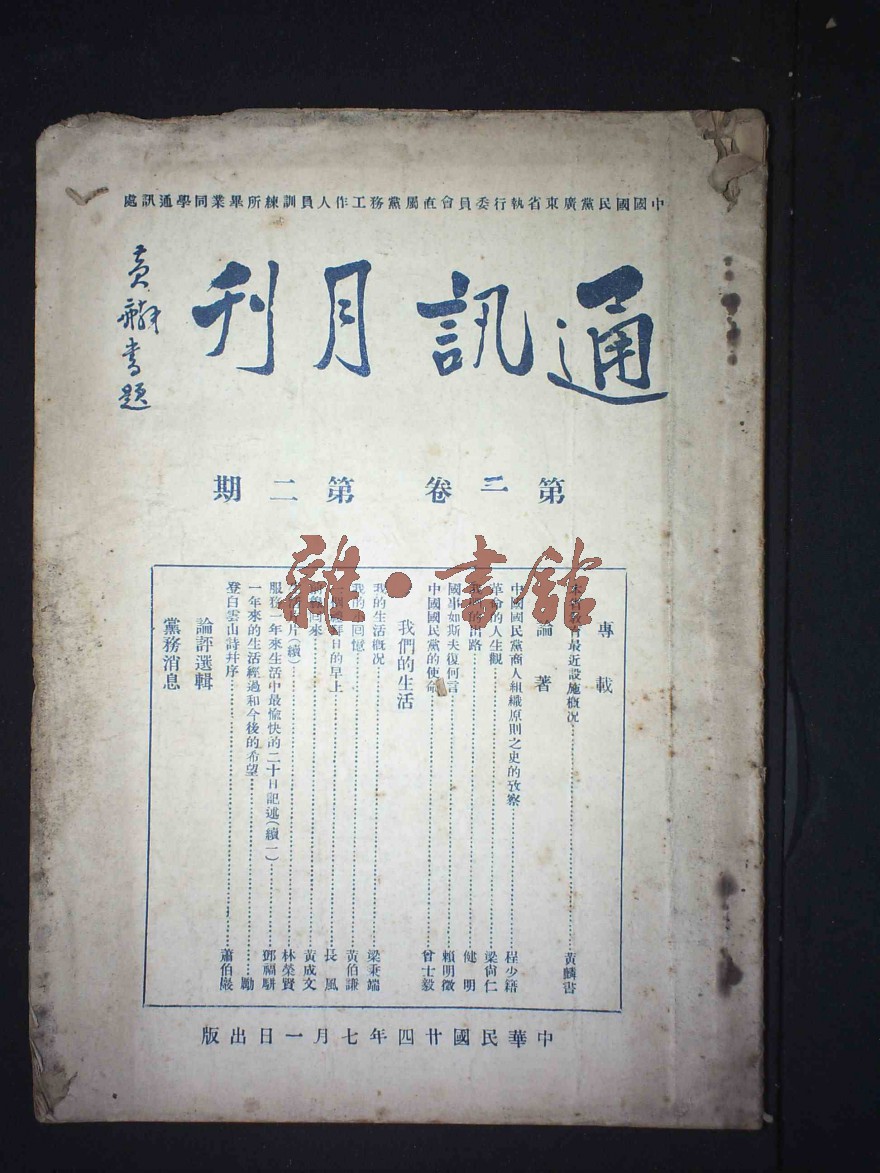 中國國民黨廣東省執行委員會直屬黨務工作人員訓練所畢業同學通訊處
通訊月刊
黃麟書題
第二卷 第二期
專載
最近設施概況 黃麟書
論著
中國國民黨商人組織原則之史的攷察 程少籍
革命的人生觀 梁尚仁
出路 健明
國事如斯夫復何言 賴明徵
中國國民黨的使命 曾士毅
我們的生活
我的生活概況 梁秉端
我的小回憶 黃伯謙
日的早上 長風
回來 黃成文
片(續) 林榮賢
服務一年來生活中最愉快的二十日記述(續一) 鄧福駢
一年來的生活經過和今後的希望 勵
登白雲山詩幷序 蕭伯嚴
論評選輯
黨務消息
中華民國廿四年七月一日出版
雜·書館